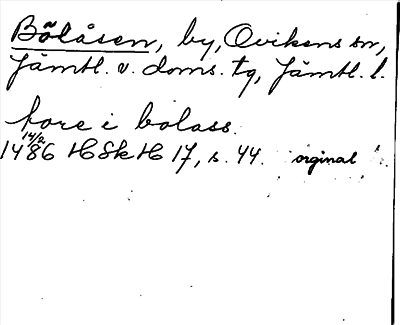 Bölåsen, by, Ovikens sn,
Jämtl. v. doms. tg, Jämtl. l.
tore i bolass.
14/2
1486 HSkH 17, s. 44. orginal